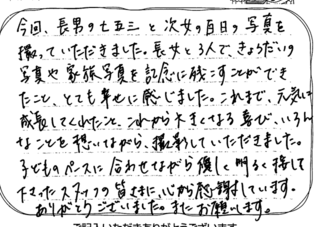 今回、長男の七五三と次女の百日の写真を
撮っていただきました。長女と3人で、きょうだいの
写真や家族写真を記念に残すことができ
たこと、とても幸せに感じました。これまで、元気に
成長してくれたこと、これから大きくなる喜び、いろん
なことを想いながら、撮影していただきました。
子どものペースに合わせながら優しく明るく接して
下さったスタッフの皆さまに心から感謝しています。
ありがとうございました。またお願いします。
ご記入いただきありがとうございます